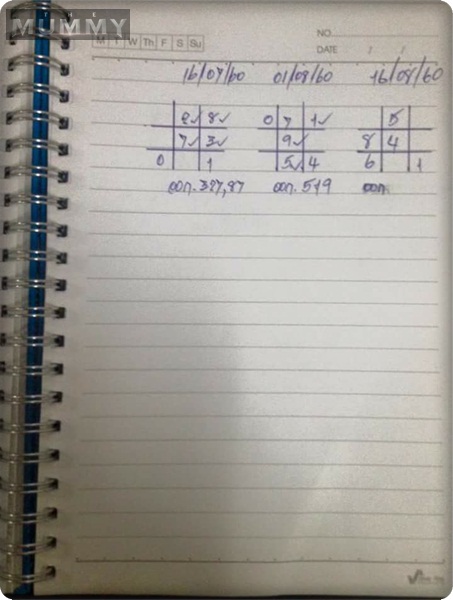 MUMMY
NO.
M T W Th F S Su
DATE / /
16/07/60 01/08/60 16/08/60
2✓ 8✓ 0 7 1✓ 5
7✓ 3✓ 9✓ 8 4
0 1 5✓ 4 6 1
ออก. 327,87 ออก. 519 ออก